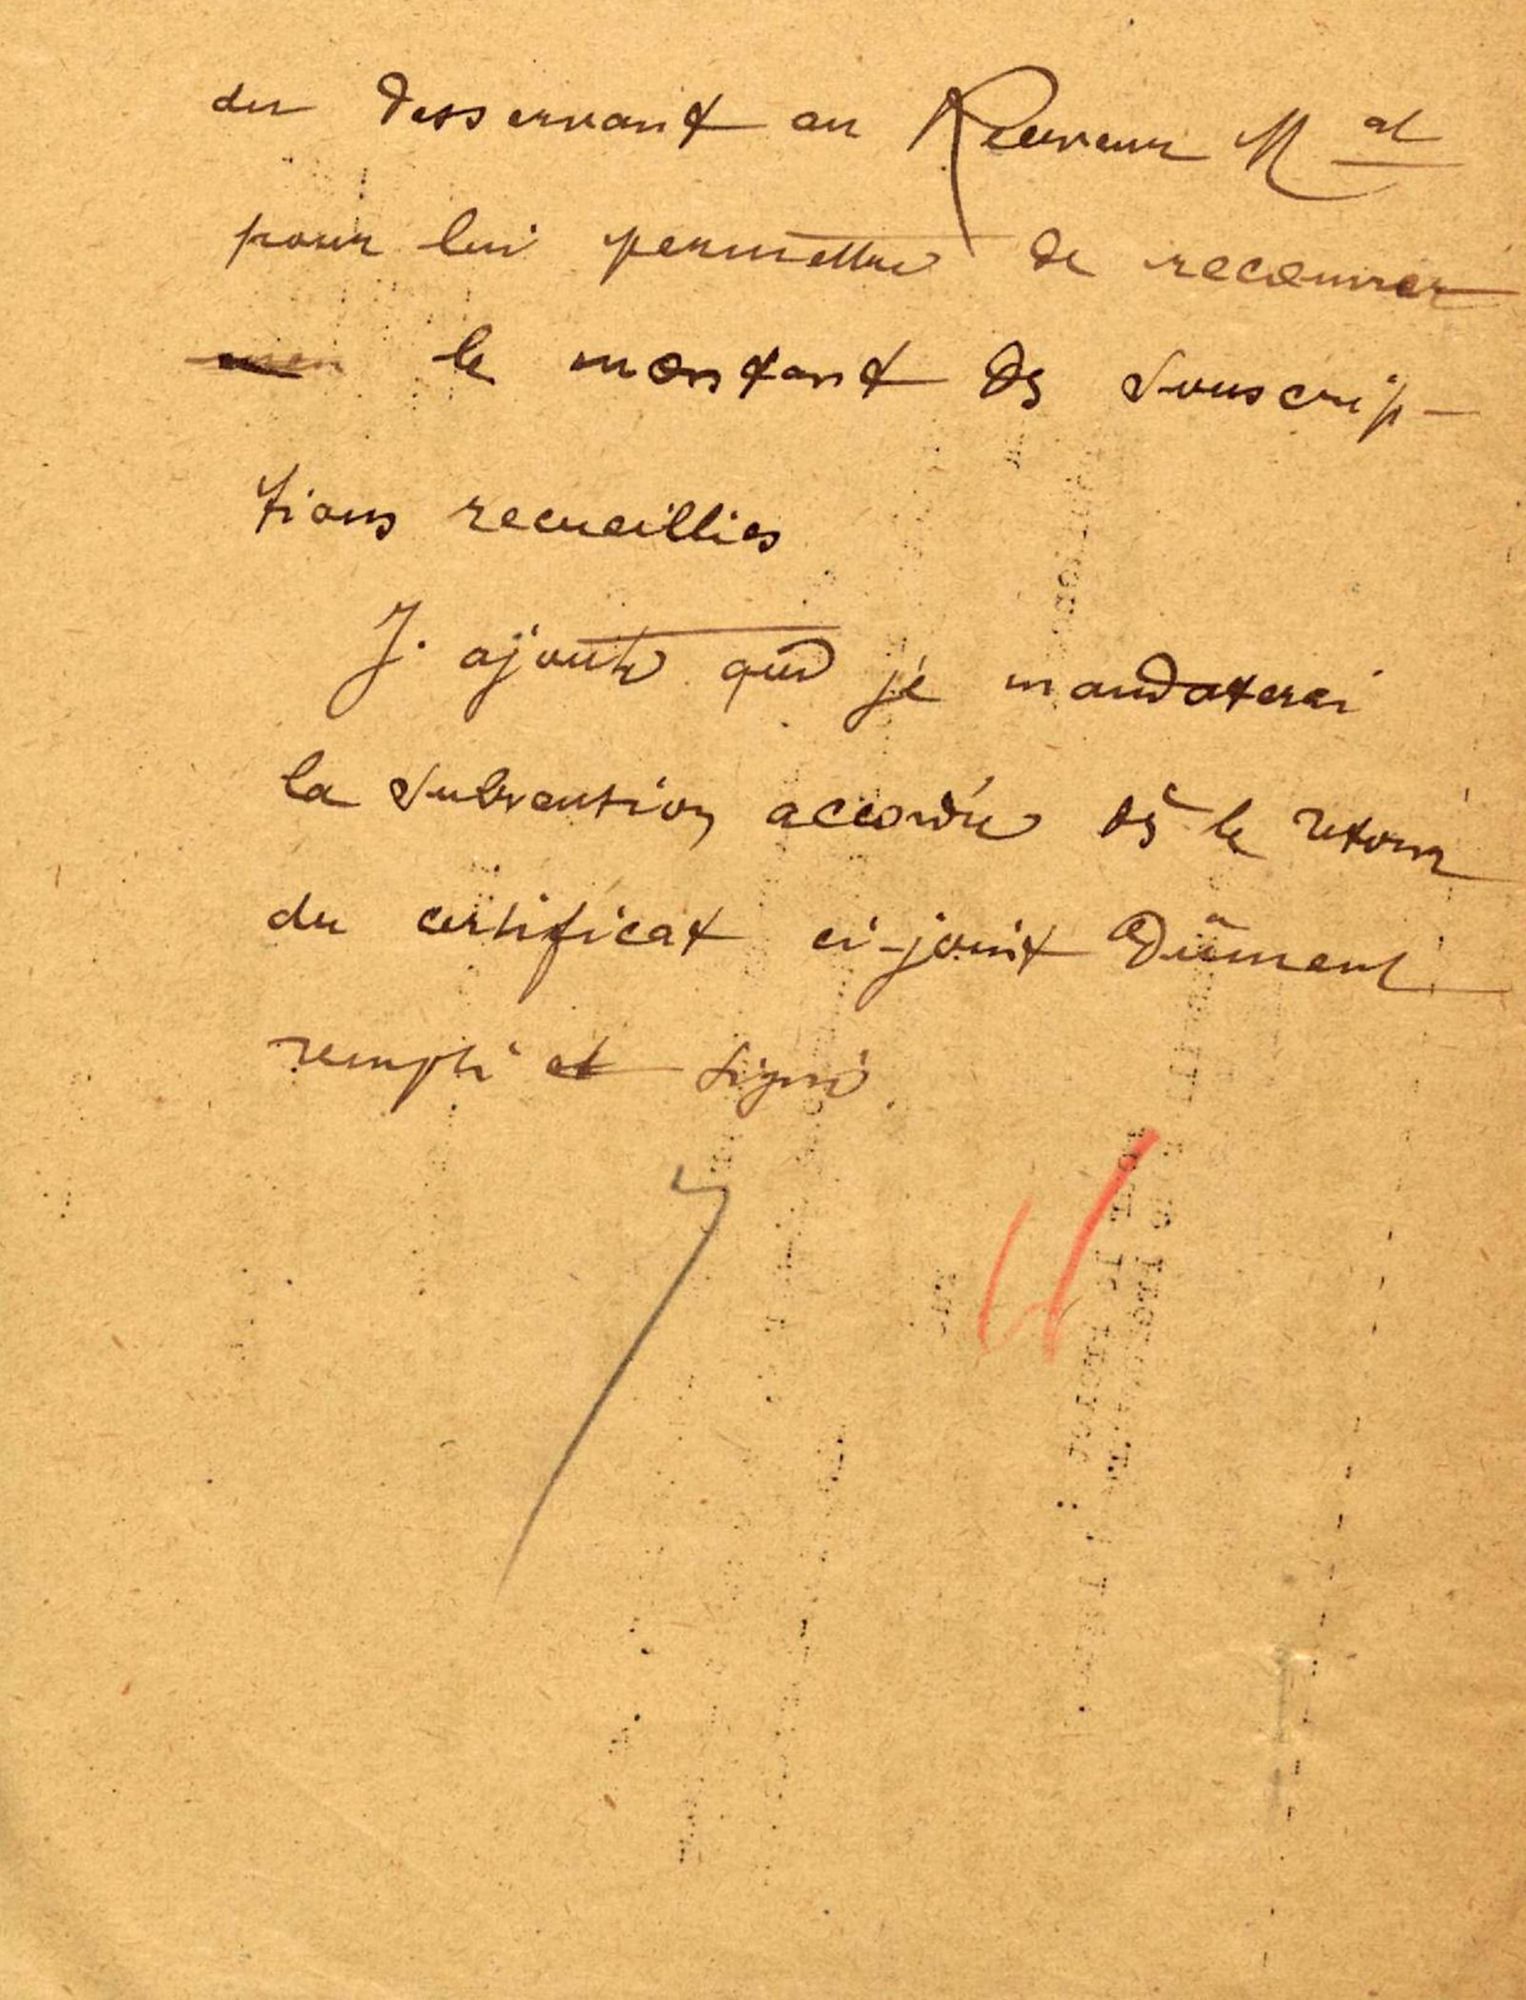 du desservant au Receveur Mal
pour lui permettre de recouvrer
le montant des souscrip-
tions recueillies
J. ajoute que je mandaterai
la subvention accordée dès le retour
du certificat ci-joint dûment
rempli et signé.